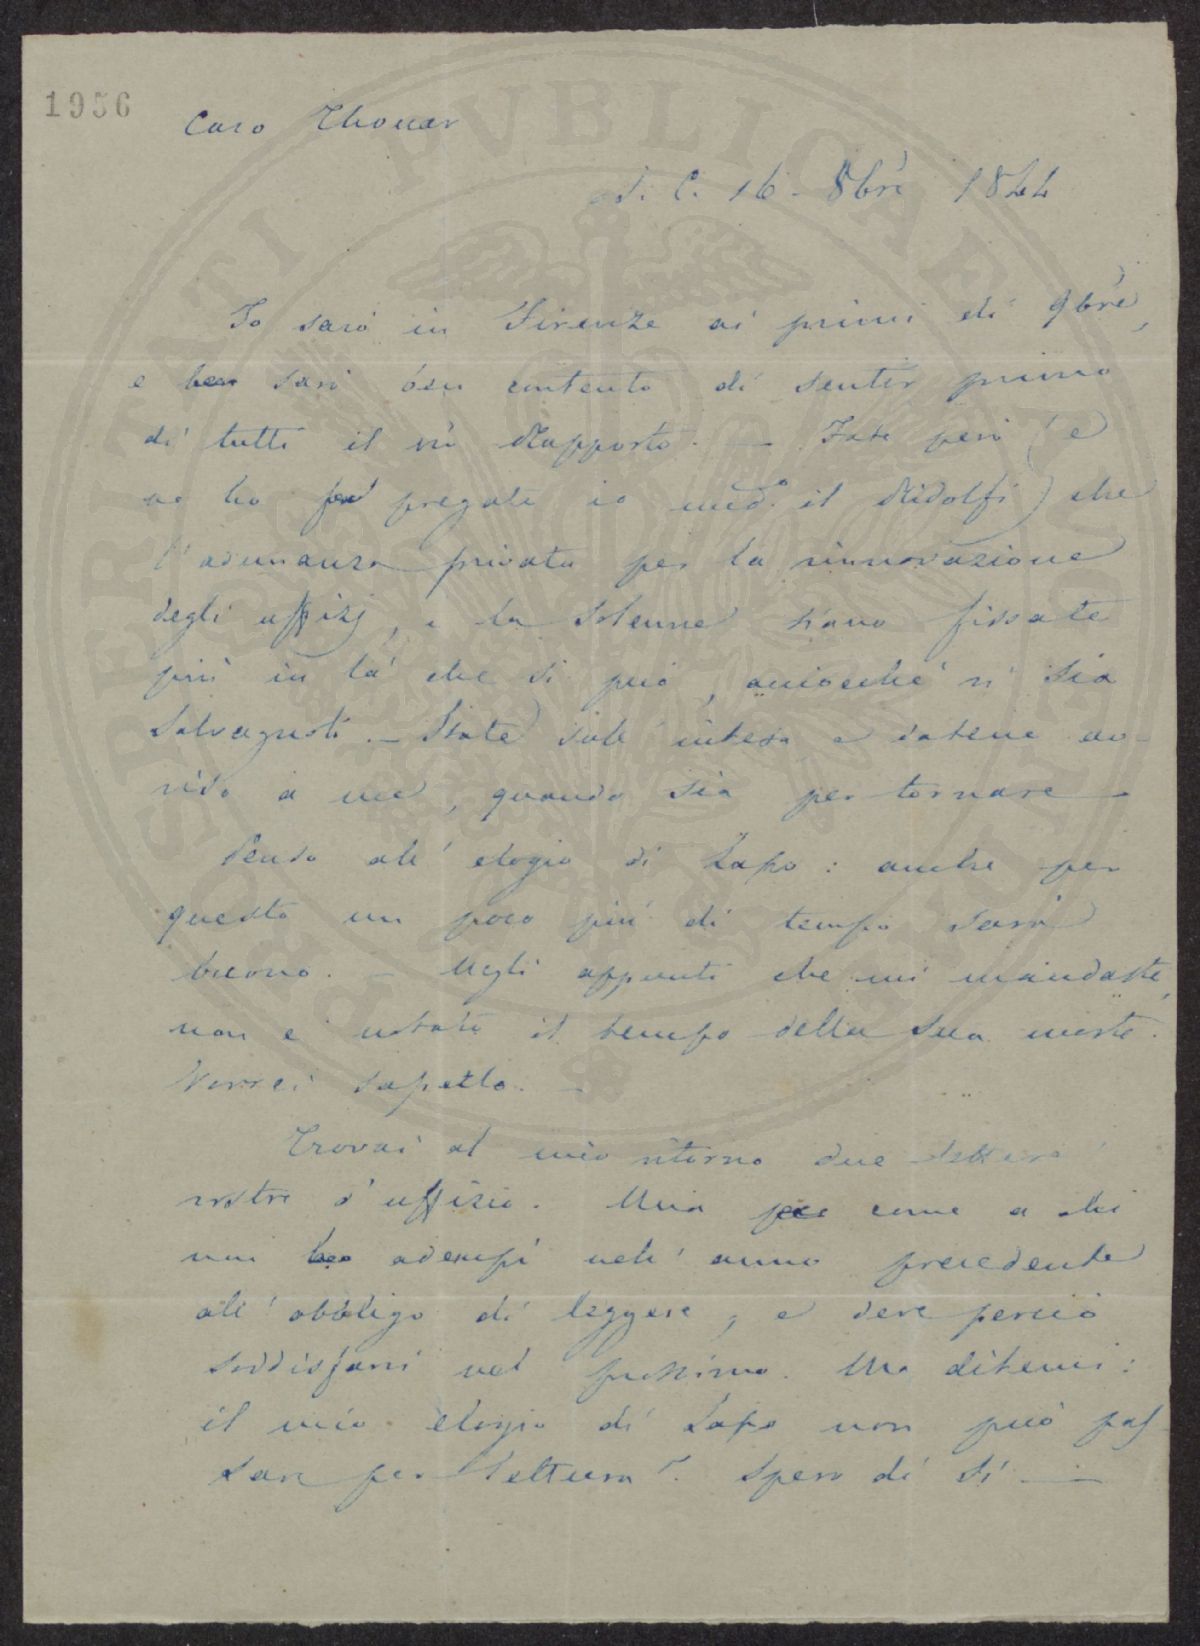 1956
Caro Thouar
S. C. 16. 8bre 1844
Io sarò in Firenze ai primi di 9bre,
e ben sarò ben contento di sentir primo
di tutti il vo Rapporto. — Fate però (e
ne ho pregato io med.o il Ridolfi) che
l'adunanza privata per la rinnovazione
degli uffizj, e la solenne siano fissate
più in là che si può, acciocché vi sia
Salvagnoli. — State sull'intesa e datene av-
viso a me, quando sia per tornare —
Penso all'elogio di Lapo: anche per
questo un poco più di tempo sarà
buono. — Negli appunti che mi mandaste,
non è notato il tempo della sua morte.
Vorrei saperlo. —
Trovai al mio ritorno due lettere
vostre d'uffizio. Una come a chi
non adempì nell'anno precedente
all'obbligo di leggere, e deve perciò
soddisfarvi nel prossimo. Ma ditemi:
il mio elogio di Lapo non può pas
sare per lettura? Spero di sì —
PVBLICAE
PROSPERITATI